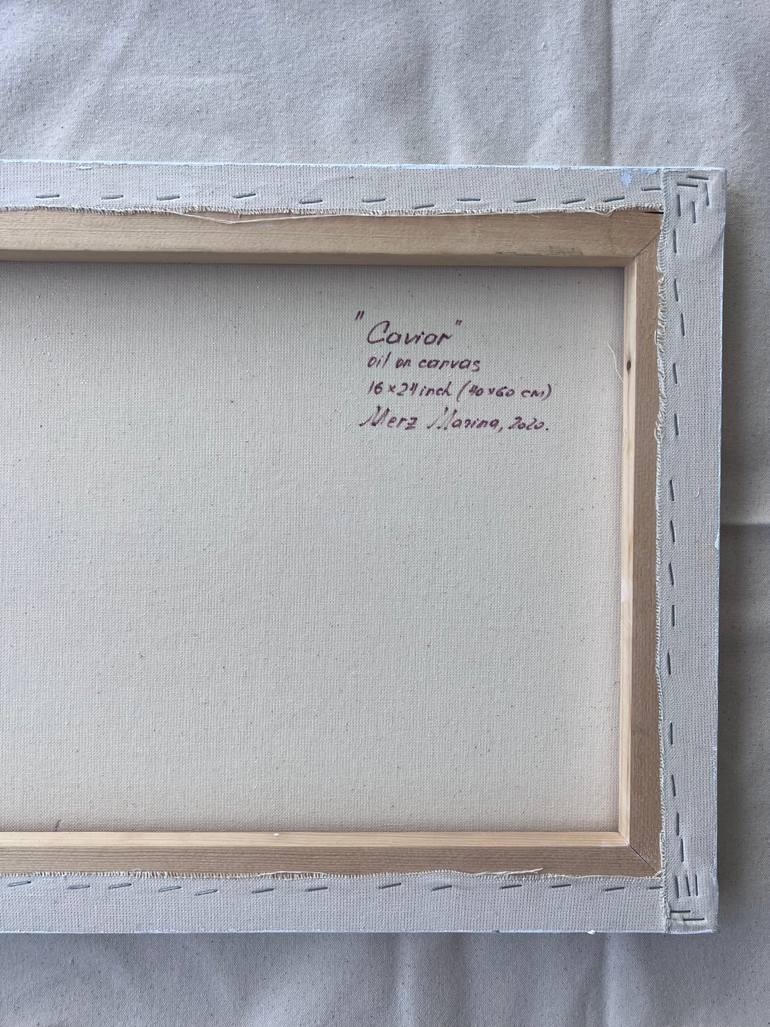 "Caviar"
oil on canvas
16x24 inch (40x60 cm)
Merz Marina, 2020.